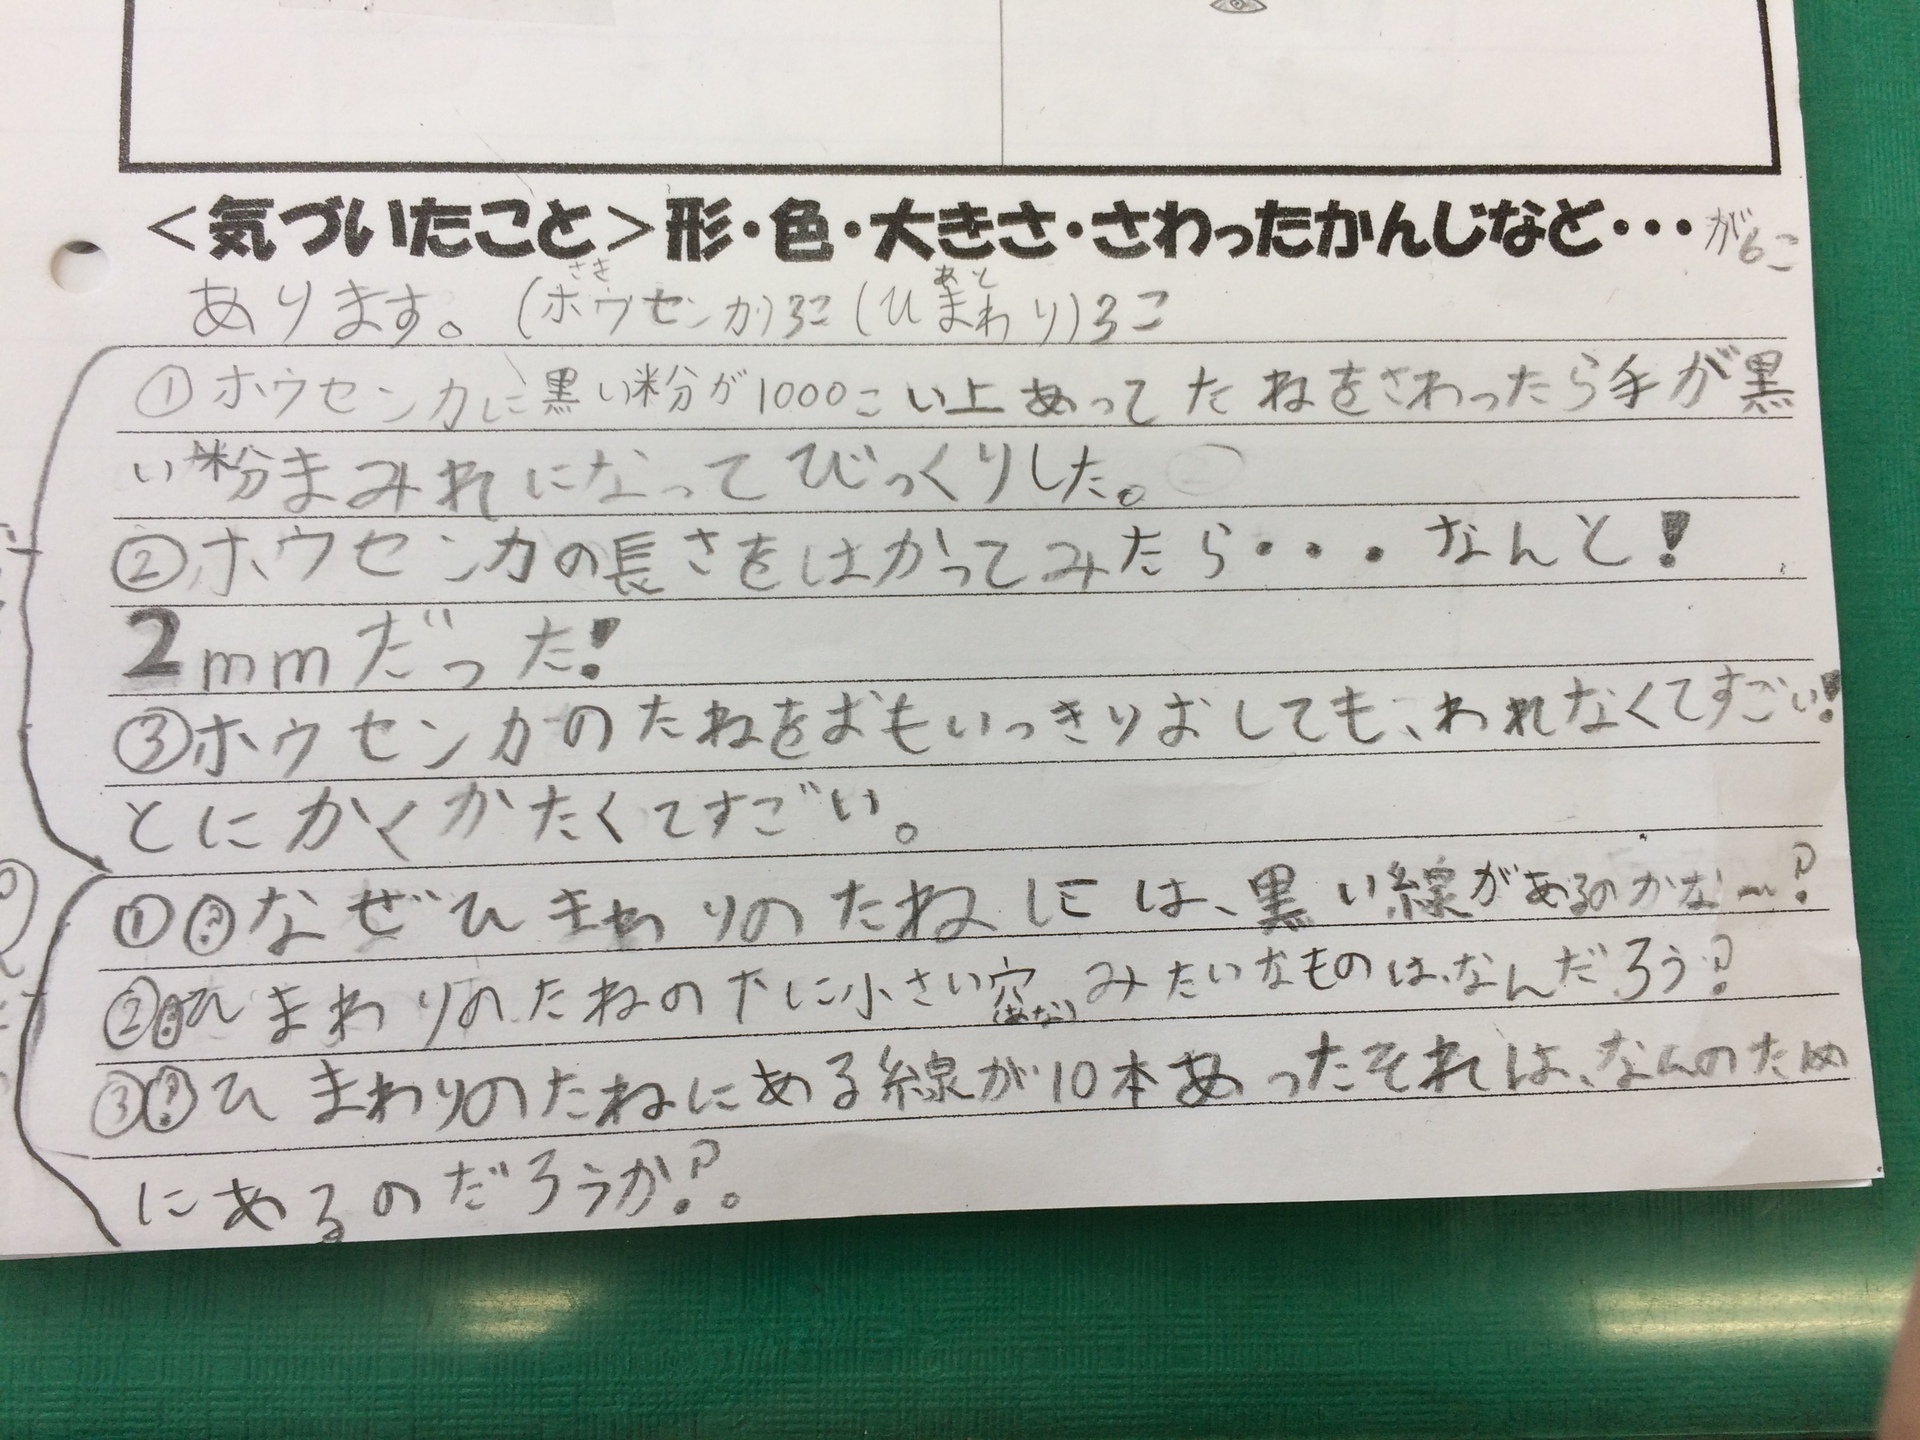 ＜気づいたこと＞形・色・大きさ・さわったかんじなど・・・が6こ
あります。(ホウセンカ)3こ(ひまわり)3こ
さき
あと
①ホウセンカに黒い粉が1000こい上あってたねをさわったら手が黒
い粉まみれになってびっくりした。
②ホウセンカの長さをはかってみたら・・・なんと!
2mmだった!
③ホウセンカのたねをおもいっきりおしても、われなくてすごい!
とにかくかたくてすごい。
①?なぜひまわりのたねには、黒い線があるのかな〜?
②?ひまわりのたねの下に小さい穴みたいなものは、なんだろう?
(あな)
③?ひまわりのたねにある線が10本あったそれは、なんのため
にあるのだろうか?。